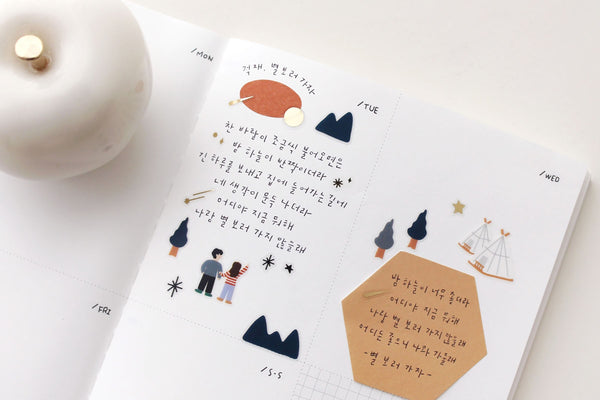 /MON
적재, 별 보러 가자
/TUE
찬 바람이 조금씩 불어오면은
밤 하늘이 반짝이더라
긴 하루를 보내고 집에 들어가는 길에
네 생각이 문득 나더라
어디야 지금 뭐해
나랑 별 보러 가지 않을래
/WED
밤 하늘이 너무 좋더라
어디야 지금 뭐해
나랑 별 보러 가지 않을래
어디든 좋으니 나와 가줄래
- 별 보러 가자 -
/FRI
/S·S